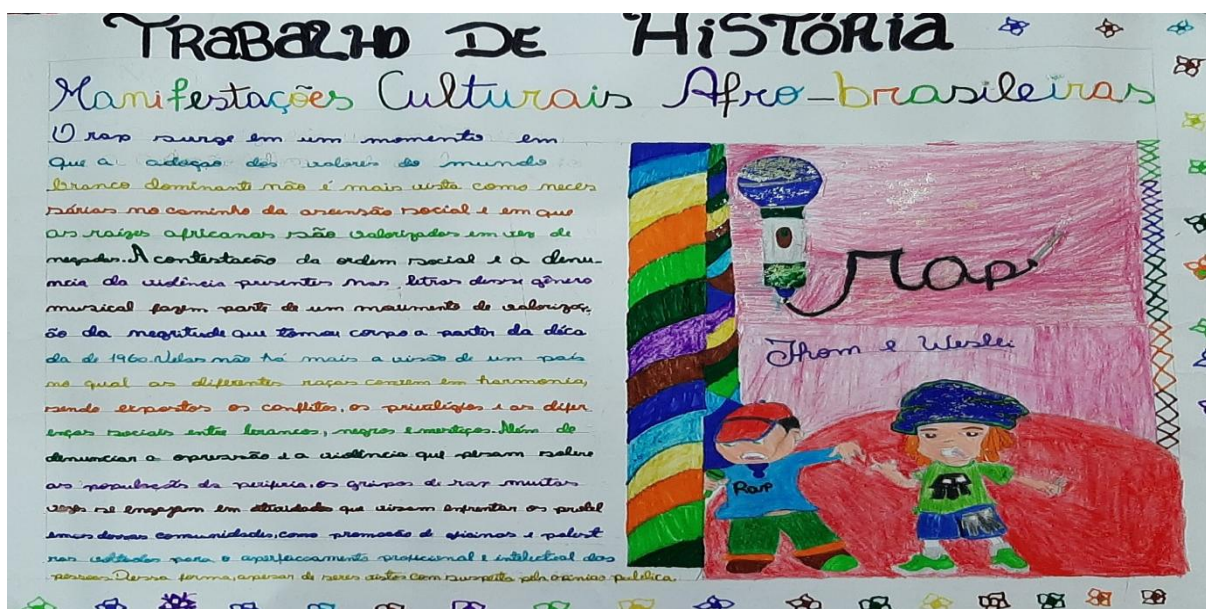 TRABALHO DE HISTÓRIA
Manifestações Culturais Afro-brasileiras
O rap surge em um momento em
que a adoção dos valores do mundo
branco dominante não é mais vista como neces
sárias no caminho da ascensão social e em que
as raízes africanas são valorizadas em vez de
negadas. A contestação da ordem social e a denu-
ncia da violência presentes nas letras desse gênero
musical fazem parte de um movimento de valorizaç
ão da negritude que tomou corpo a partir da déca
da de 1960. Nelas não há mais a visão de um país
no qual as diferentes raças convem em harmonia,
sendo expostos os conflitos, os privilégios e as difer
enças sociais entre brancos, negros e mestiços. Além de
denunciar a opressão e a violência que pesam sobre
as populações da periferia, os grupos de rap muitas
vezes se engajam em atividades que visam enfrentar os probl
emas dessas comunidades, como promoção de oficinas e palest
ras voltadas para o aperfeiçoamento profissional e intelectual das
pessoas. Dessa forma, apesar de serem vistos com suspeita pela opinião publica
Rap
Thom e Weslei
Rap